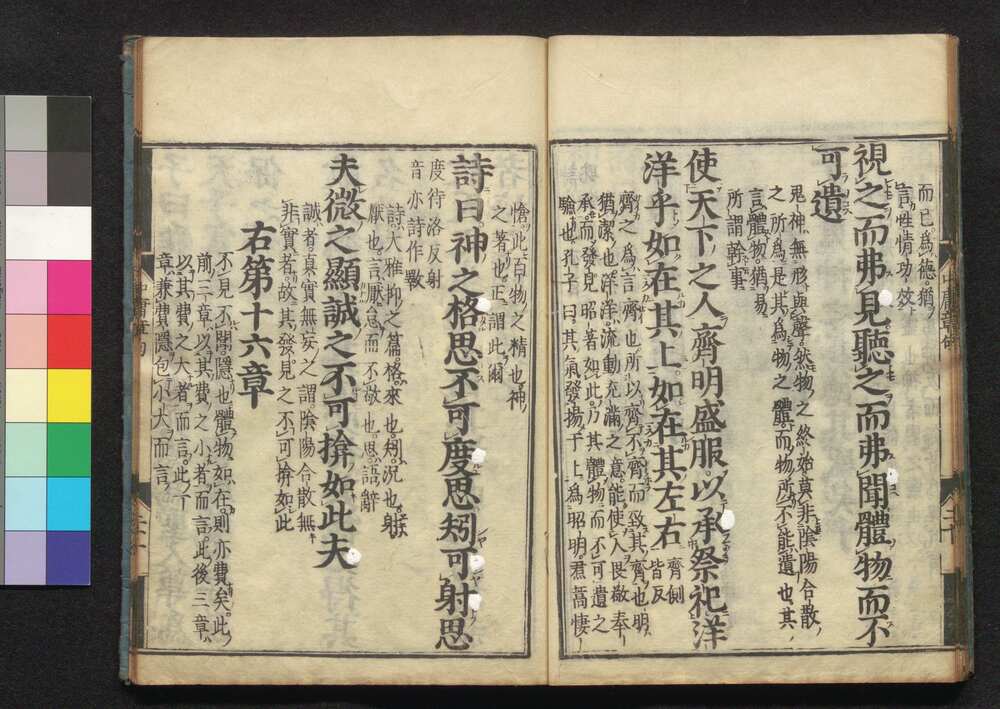 而已爲德猶
言性情功效
視之而弗見聽之而弗聞體物而不
可遺
鬼神無形與聲然物之終始莫非陰陽合散
之所爲是其爲物之體而物所不能遺也其
言體物猶易
所謂幹事
使天下之人齊明盛服以承祭祀洋
洋乎如在其上如在其左右
齊側
皆反
齊之爲言齊也所以齊不齊而致其齊也明
猶潔也洋洋流動充滿之意能使人畏敬奉
承而發見昭著如此乃其體物而不可遺之
驗也孔子曰其氣發揚于上爲昭明焄蒿悽
愴此百物之精也神
之著也正謂此爾
詩曰神之格思不可度思矧可射思
度待洛反射
音亦詩作斁
詩大雅抑之篇格來也矧況也射
厭也言厭怠而不敬也思語辭
夫微之顯誠之不可揜如此夫
誠者眞實無妄之謂陰陽合散無
非實者故其發見之不可揜如此
右第十六章
不見不聞隱也體物如在則亦費矣此
前三章以其費之小者而言此後三章
以其費之大者而言此一
章兼費隱包小大而言